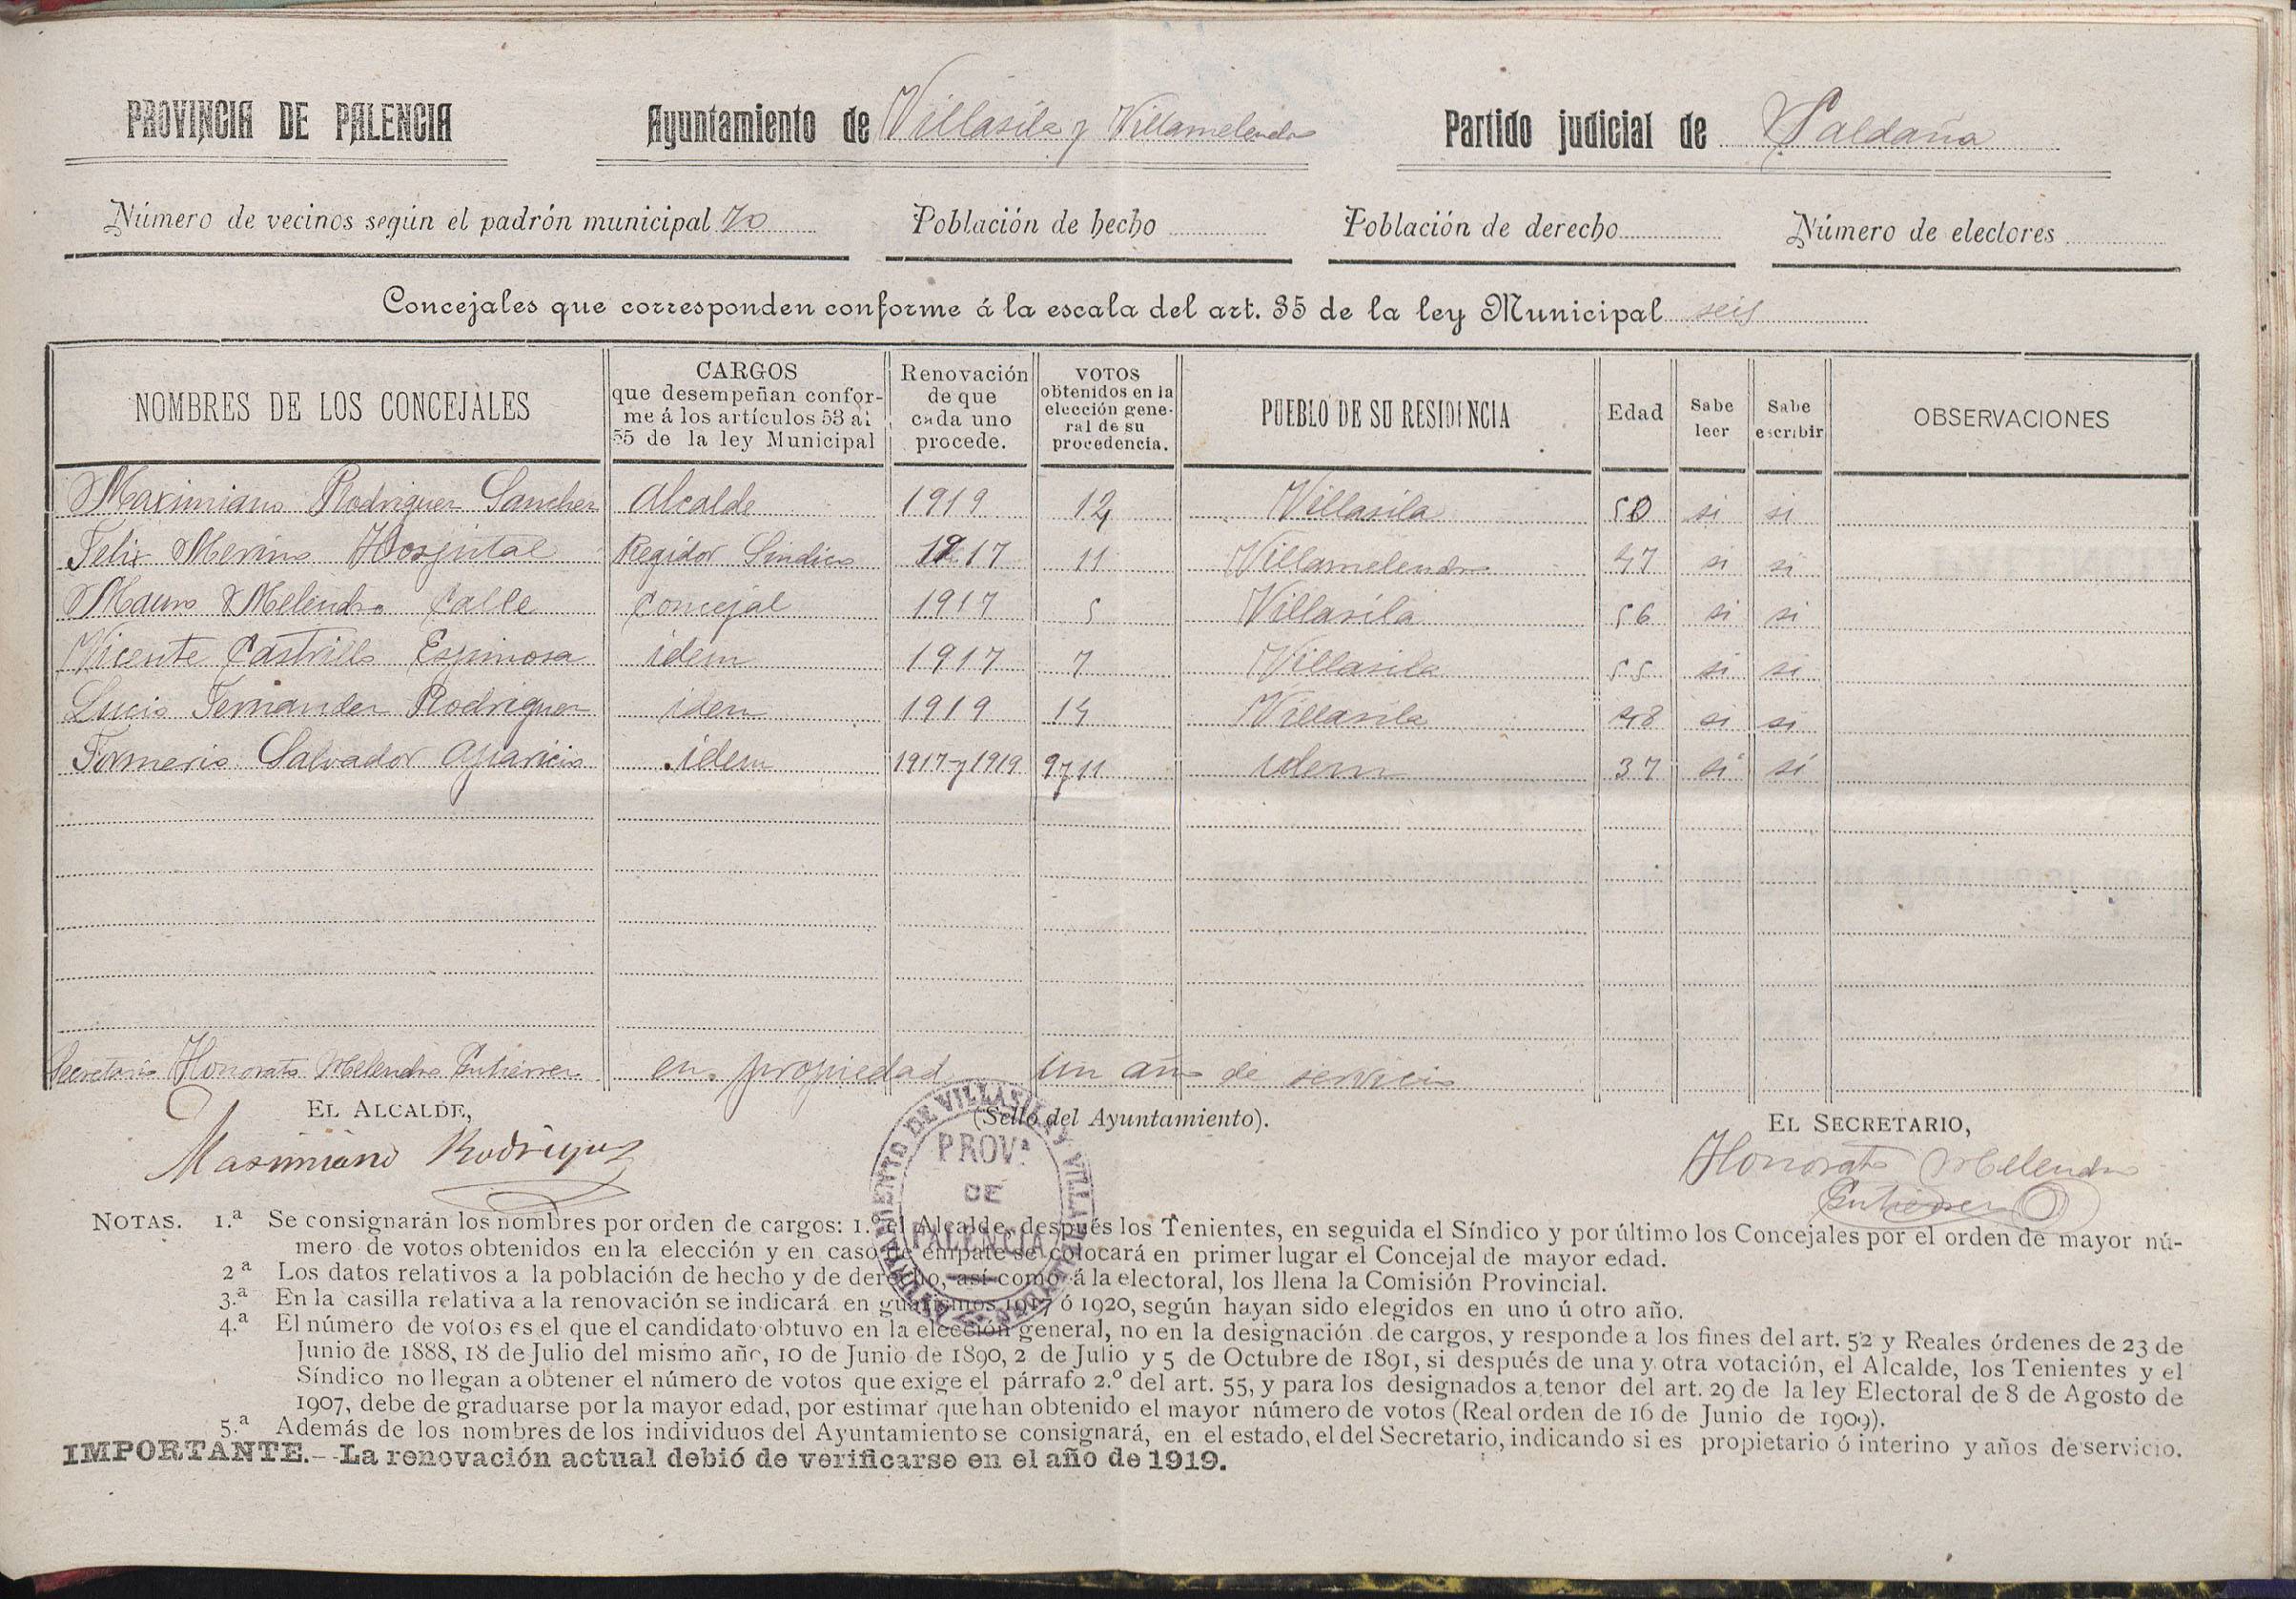 PROVINCIA DE PALENCIA Ayuntamiento de Villasila y Villamelendro Partido judicial de Saldaña
Número de vecinos según el padrón municipal 70 Población de hecho Población de derecho Número de electores
Concejales que corresponden conforme á la escala del art. 35 de la ley Municipal seis
NOMBRES DE LOS CONCEJALES CARGOS que desempeñan confor- me á los artículos 53 al 55 de la ley Municipal Renovación de que cada uno procede. VOTOS obtenidos en la elección gene- ral de su procedencia. PUEBLO DE SU RESIDENCIA Edad Sabe leer Sabe escribir OBSERVACIONES
Maximiano Rodriguez Sanchez Alcalde 1919 12 Villasila 50 si si
Felix Merino Hospital Regidor Sindico 1917 11 Villamelendro 47 si si
Mauro Melendro Calle Concejal 1917 5 Villasila 56 si si
Vicente Castrillo Espinosa idem 1917 7 Villasila 55 si si
Lucio Fernandez Rodriguez idem 1919 14 Villasila 48 si si
Formerio Salvador Aparicio idem 1917 y 1919 9 y 11 idem 37 si si
Secretario Honorato Melendro Gutierrez en propiedad un año de servicio
EL ALCALDE, (Sello del Ayuntamiento). EL SECRETARIO,
Masimiano Rodriguez Honorato Melendro
Gutierrez
AYUNTAMIENTO DE VILLASILA Y VILLAMELENDRO
PROV.ª
DE
PALENCIA
NOTAS. 1.ª Se consignarán los nombres por orden de cargos: 1.º el Alcalde, después los Tenientes, en seguida el Síndico y por último los Concejales por el orden de mayor nú-
mero de votos obtenidos en la elección y en caso de empate se colocará en primer lugar el Concejal de mayor edad.
2.ª Los datos relativos a la población de hecho y de derecho, así como á la electoral, los llena la Comisión Provincial.
3.ª En la casilla relativa a la renovación se indicará en guarismos 1917 ó 1920, según hayan sido elegidos en uno ú otro año.
4.ª El número de votos es el que el candidato obtuvo en la elección general, no en la designación de cargos, y responde a los fines del art. 52 y Reales órdenes de 23 de
Junio de 1888, 18 de Julio del mismo año, 10 de Junio de 1890, 2 de Julio y 5 de Octubre de 1891, si después de una y otra votación, el Alcalde, los Tenientes y el
Síndico no llegan a obtener el número de votos que exige el párrafo 2.º del art. 55, y para los designados a tenor del art. 29 de la ley Electoral de 8 de Agosto de
1907, debe de graduarse por la mayor edad, por estimar que han obtenido el mayor número de votos (Real orden de 16 de Junio de 1909).
5.ª Además de los nombres de los individuos del Ayuntamiento se consignará, en el estado, el del Secretario, indicando si es propietario ó interino y años de servicio.
IMPORTANTE.—La renovación actual debió de verificarse en el año de 1919.